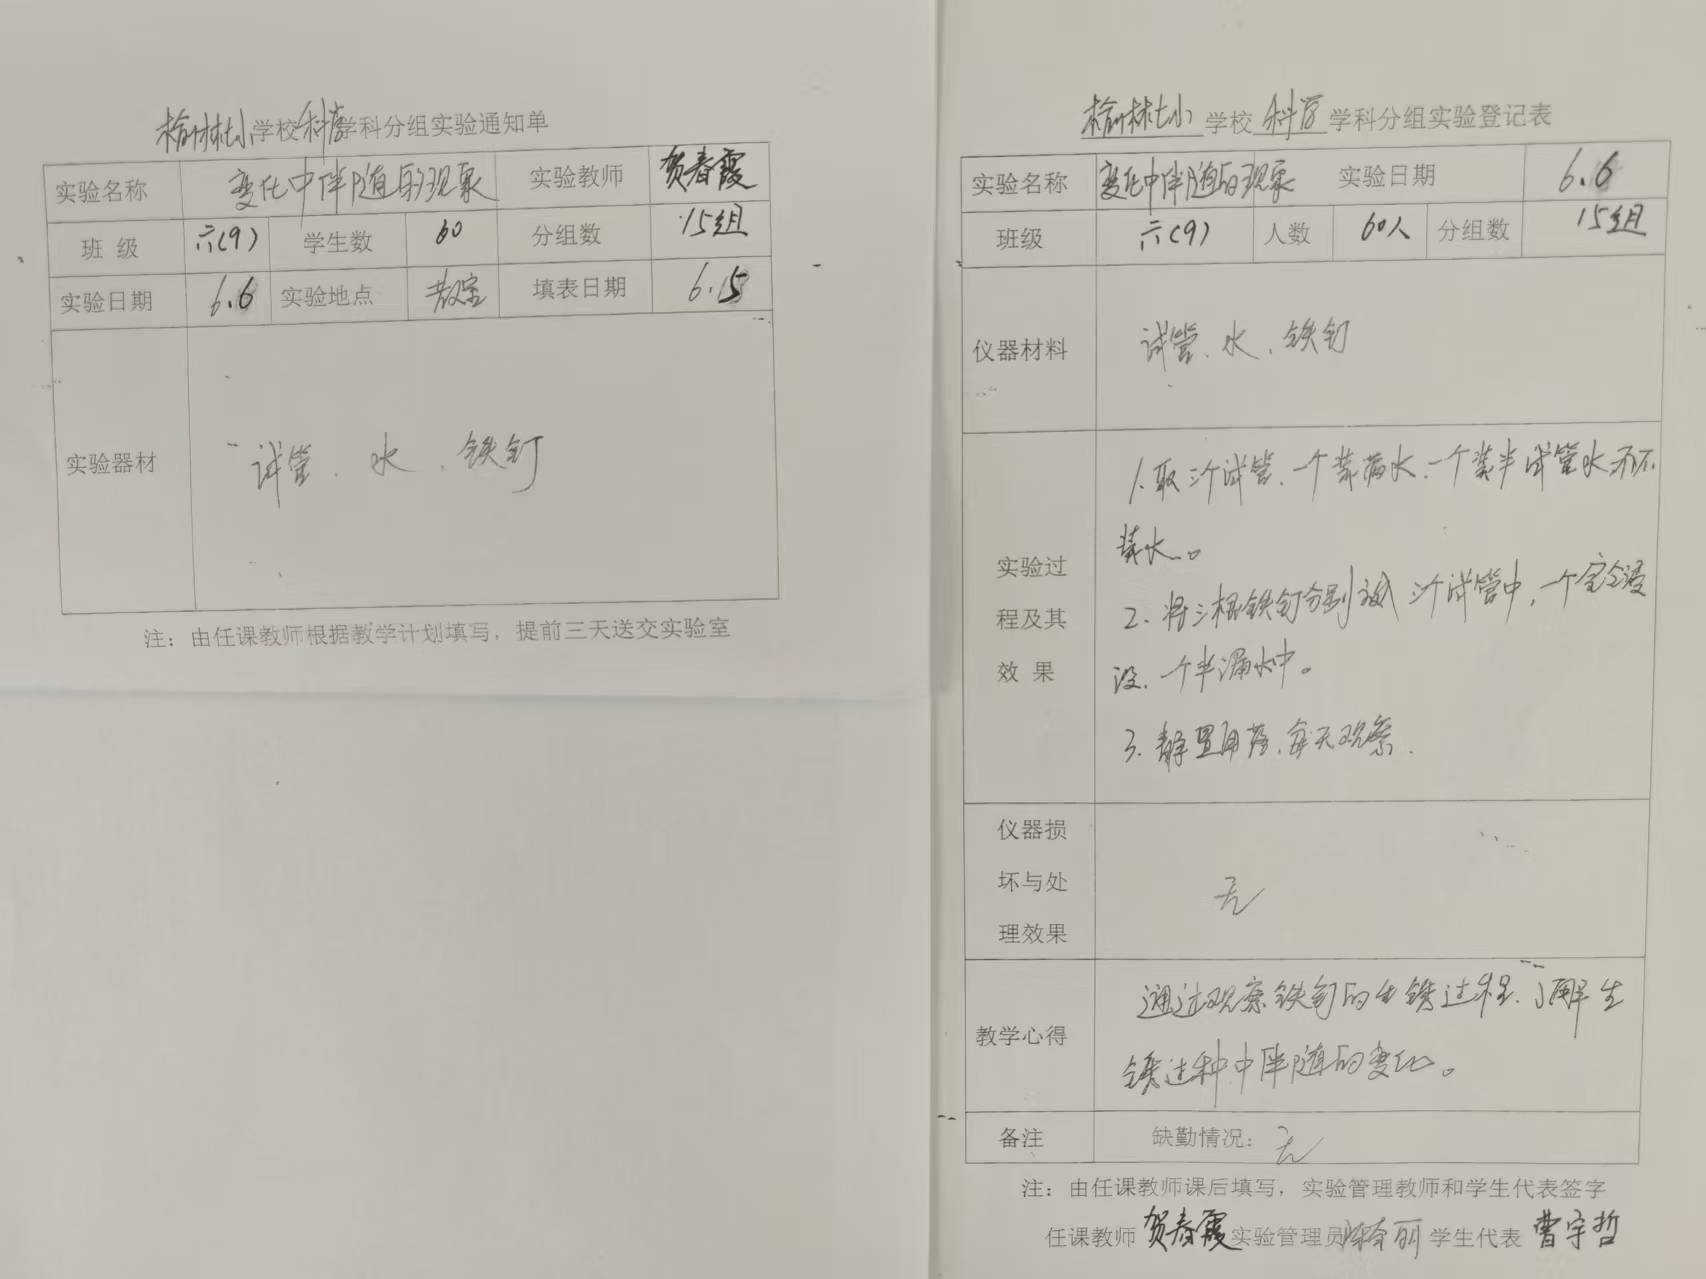 榆林七小学校科学学科分组实验通知单
实验名称 变化中伴随的现象 实验教师 贺春霞
班 级 六(9) 学生数 60 分组数 15组
实验日期 6.6 实验地点 教室 填表日期 6.15
实验器材 试管、水、铁钉
注：由任课教师根据教学计划填写，提前三天送交实验室
榆林七小学校科学学科分组实验登记表
实验名称 变化中伴随的现象 实验日期 6.6
班级 六(9) 人数 60人 分组数 15组
仪器材料 试管、水、铁钉
实验过
程及其
效 果
1.取三个试管、一个装满水、一个装半试管水
装水。
2.将三根铁钉分别放入三个试管中，一个完全浸
没、一个半漏水中。
3.静置用落、每天观察.
仪器损
坏与处
理效果
无
教学心得
通过观察铁钉的生锈过程、了解生
锈过种中伴随的变化。
备注 缺勤情况：无
注：由任课教师课后填写，实验管理教师和学生代表签字
任课教师 贺春霞 实验管理员 学生代表 曹宇哲